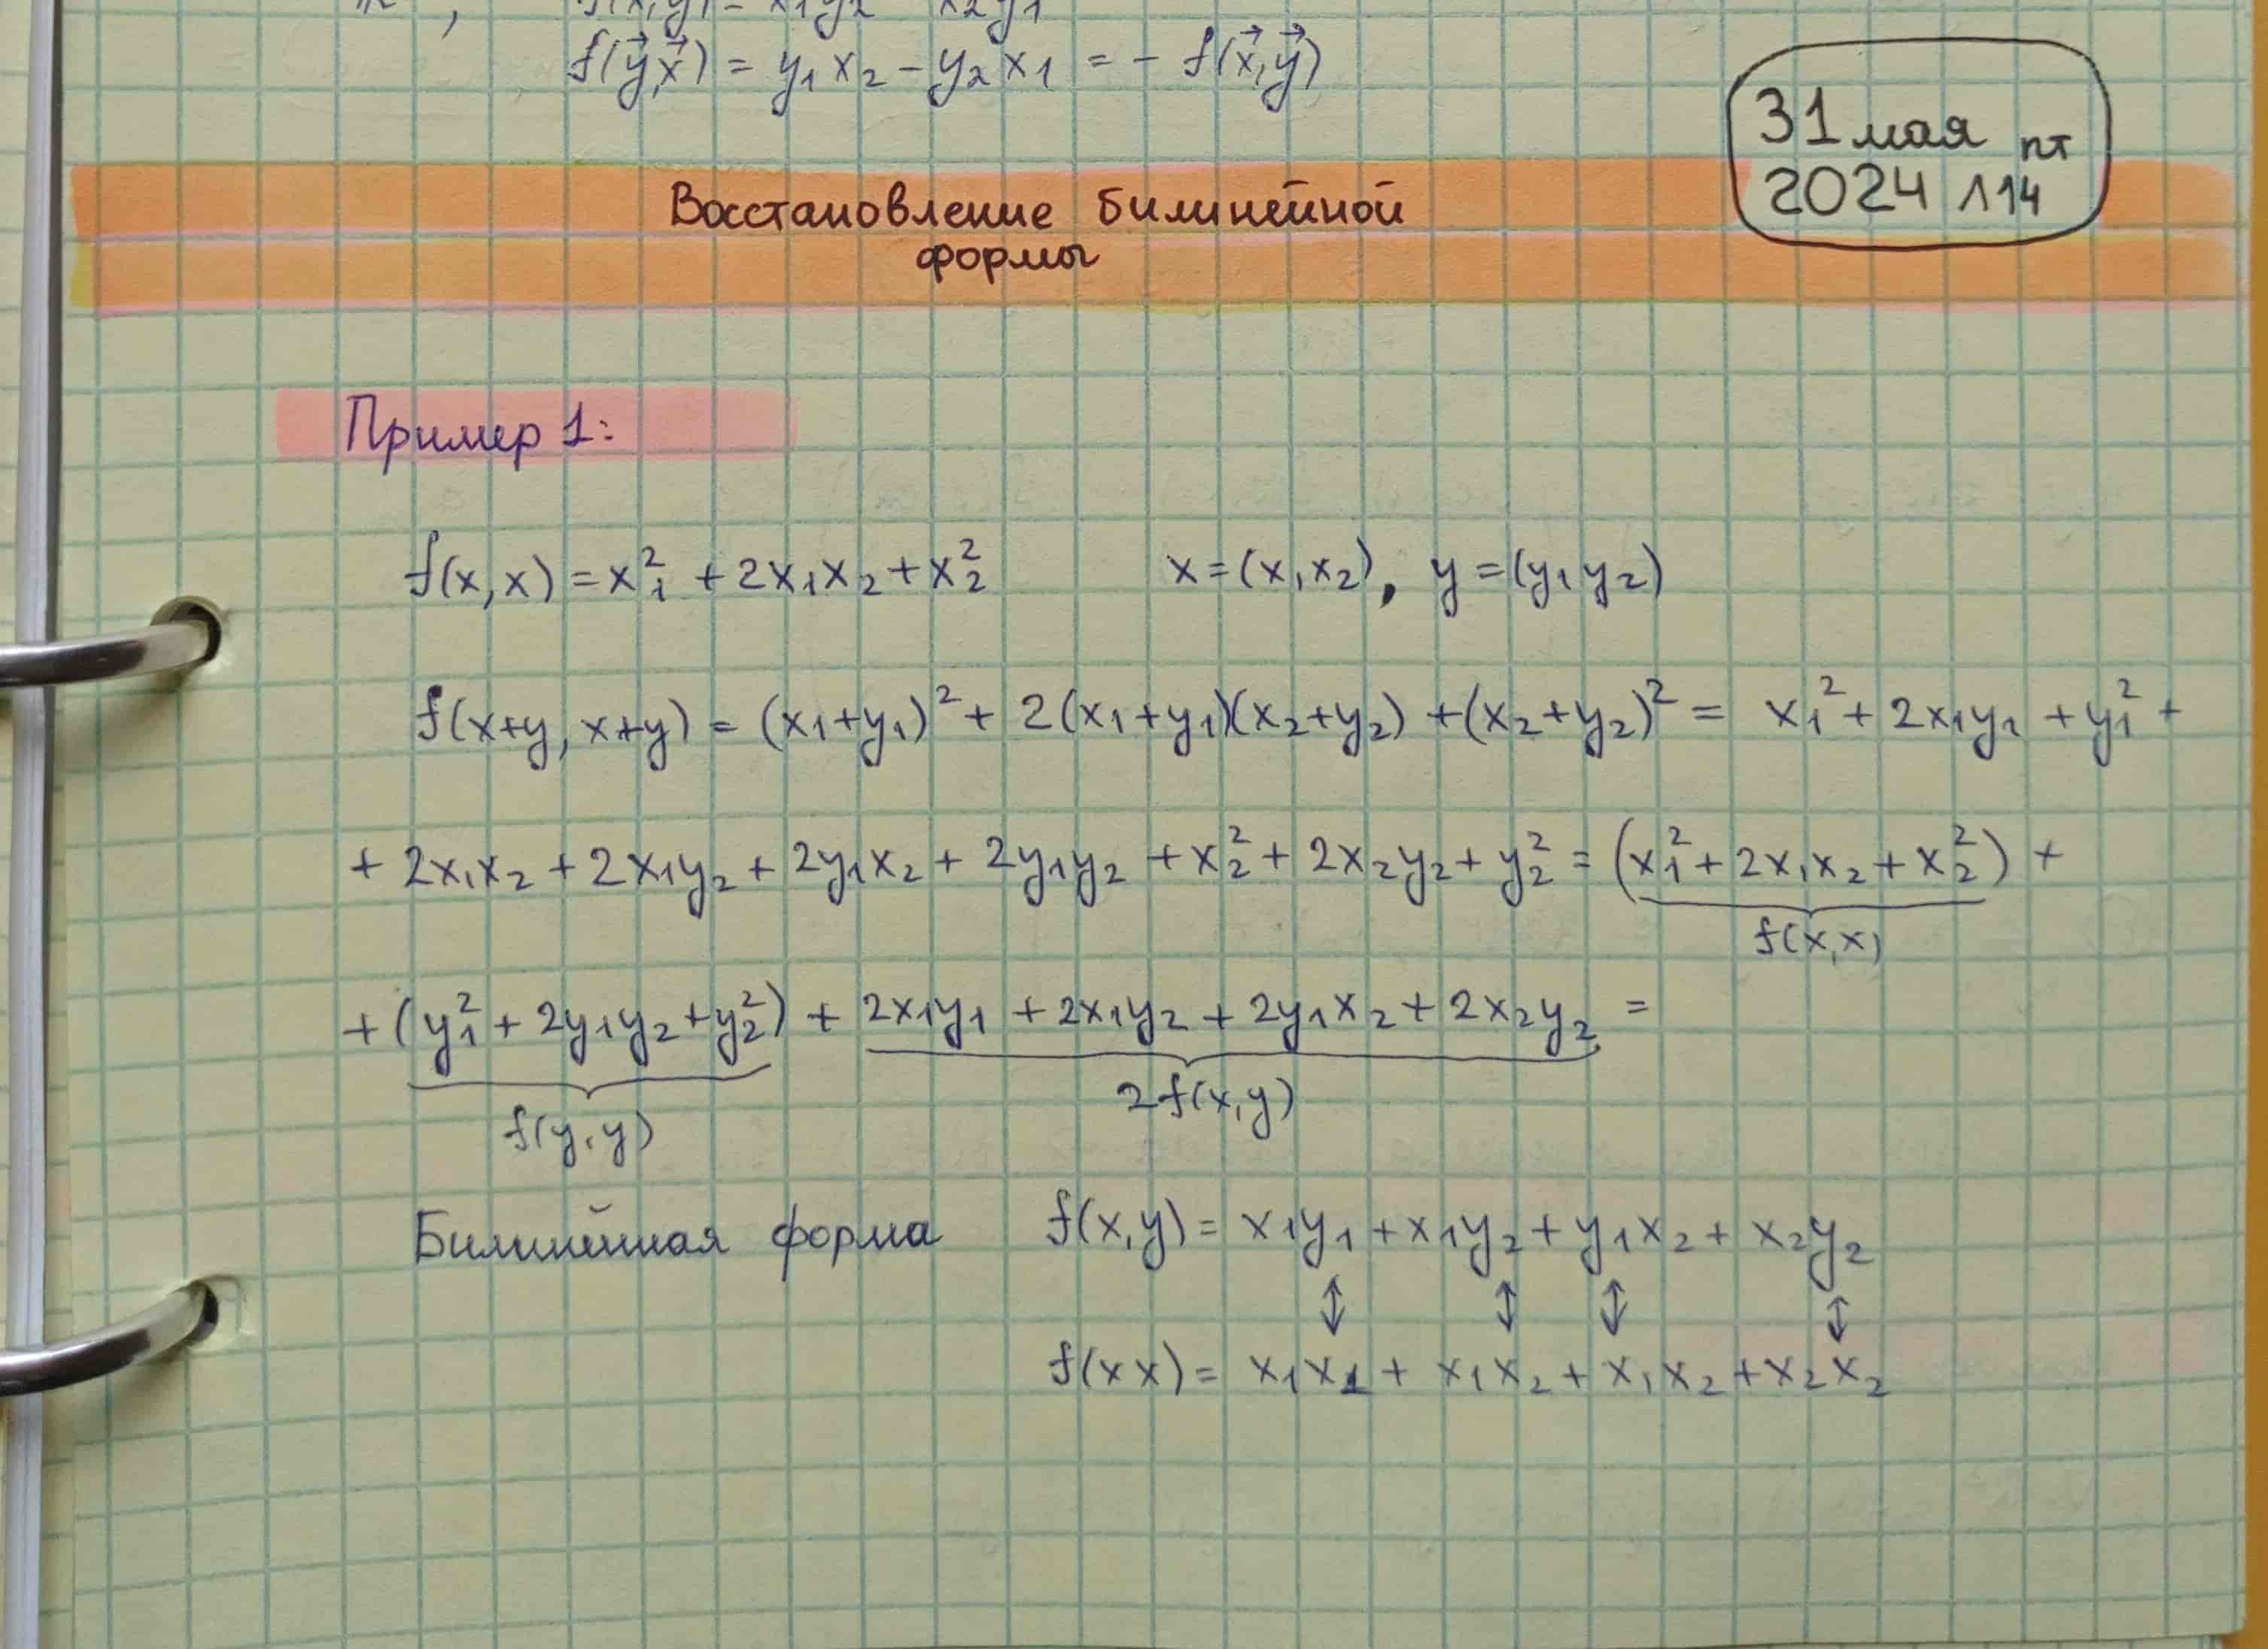 f(x,y) = x₁y₂ - x₂y₁
f(y⃗,x⃗) = y₁x₂ - y₂x₁ = - f(x⃗,y⃗)
31 мая пт
2024 Л14
Восстановление билинейной
формы
Пример 1:
f(x,x) = x₁² + 2x₁x₂ + x₂² x = (x₁x₂), y = (y₁y₂)
f(x+y, x+y) = (x₁+y₁)² + 2(x₁+y₁)(x₂+y₂) + (x₂+y₂)² = x₁² + 2x₁y₁ + y₁² +
+ 2x₁x₂ + 2x₁y₂ + 2y₁x₂ + 2y₁y₂ + x₂² + 2x₂y₂ + y₂² = (x₁² + 2x₁x₂ + x₂²) +
f(x,x)
+ (y₁² + 2y₁y₂ + y₂²) + 2x₁y₁ + 2x₁y₂ + 2y₁x₂ + 2x₂y₂ =
f(y,y) 2f(x,y)
Билинейная форма f(x,y) = x₁y₁ + x₁y₂ + y₁x₂ + x₂y₂
↕ ↕ ↕ ↕
f(x x) = x₁x₁ + x₁x₂ + x₁x₂ + x₂x₂